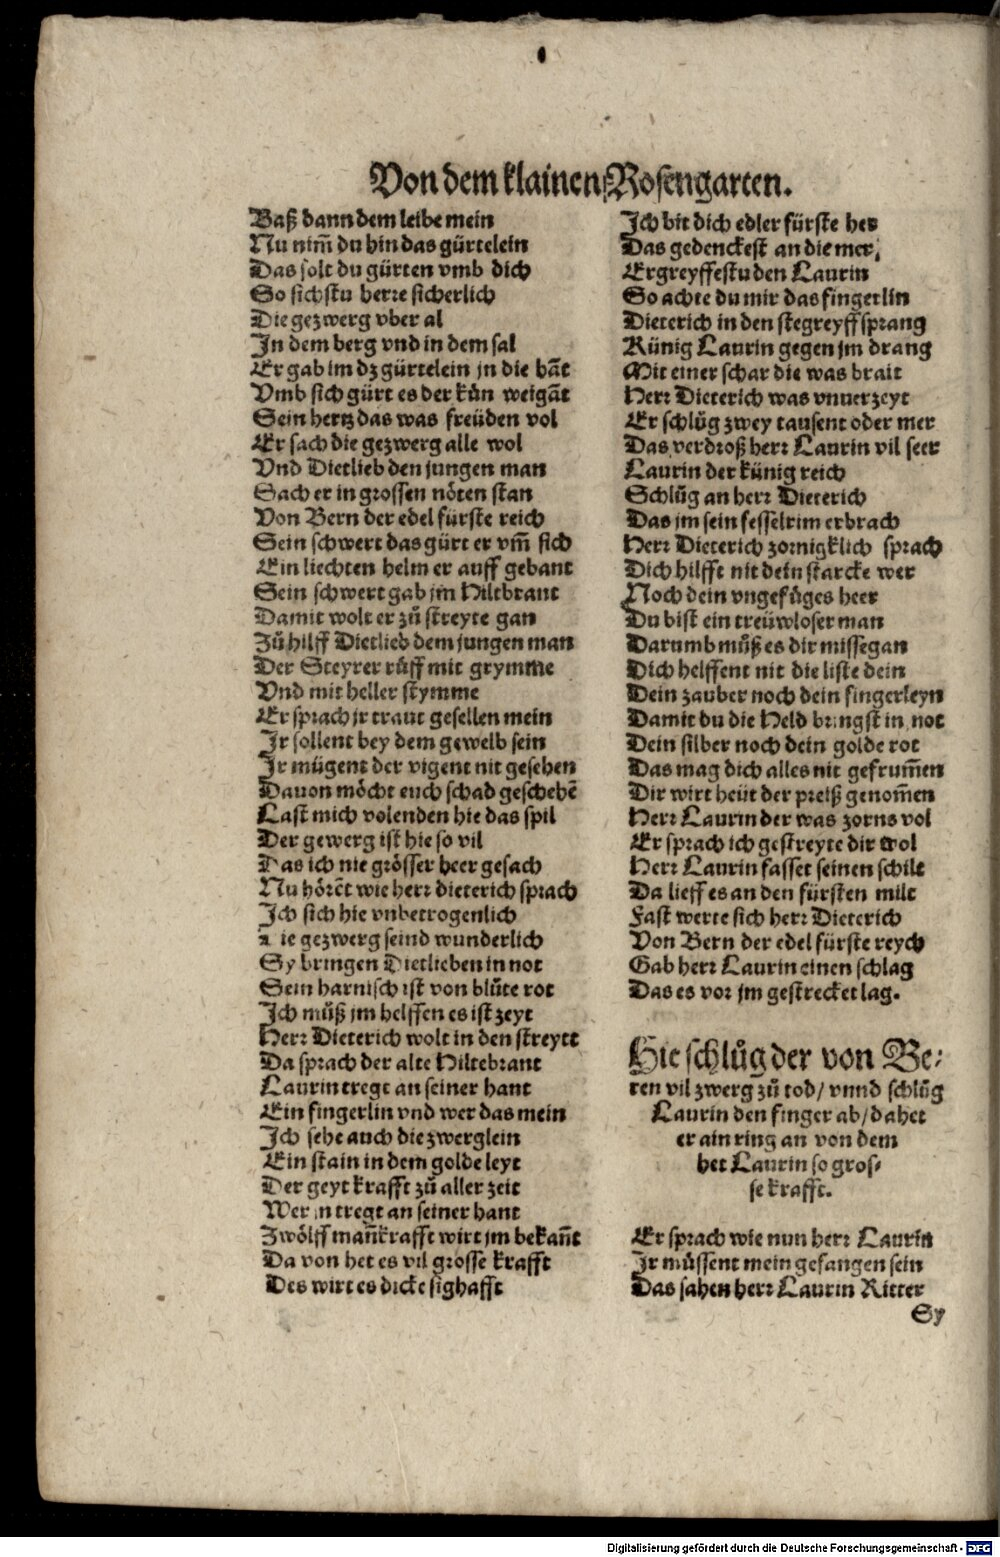 Von dem klainen Rosengarten.
Baß dann dem leibe mein
Nu nim̃ du hin das gürtelein
Das solt du gürten vmb dich
So sichstu herre sicherlich
Die gezwerg vber al
In dem berg vnd in dem sal
Er gab im dz gürtelein jn die hãt
Vmb sich gürt es der kün weigãt
Sein hertz das was freüden vol
Er sach die gezwerg alle wol
Vnd Dietlieb den jungen man
Sach er in grossen nöten stan
Von Bern der edel fürste reich
Sein schwert das gürt er vm̃ sich
Ein liechten helm er auff gebant
Sein schwert gab jm Hiltbrant
Damit wolt er zů streyte gan
Zů hilff Dietlieb dem jungen man
Der Steyrer růff mit grymme
Vnd mit heller stymme
Er sprach jr traut gesellen mein
Ir sollent bey dem gewelb sein
Ir mügent der vigent nit gesehen
Dauon möcht euch schad geschehẽ
Last mich volenden hie das spil
Der gewerg ist hie so vil
Das ich nie grösser heer gesach
Nu hörẽt wie herr dieterich sprach
Ich sich hie vnbetrogenlich
ie gezwerg seind wunderlich
Sy bringen Dietlieben in not
Sein harnisch ist von blůte rot
Ich můß jm helffen es ist zeyt
Herr Dieterich wolt in den streytt
Da sprach der alte Hiltebrant
Laurin tregt an seiner hant
Ein fingerlin vnd wer das mein
Ich sehe auch die zwerglein
Ein stain in dem golde leyt
Der geyt krafft zů aller zeit
Wer jn tregt an seiner hant
Zwölff mañkrafft wirt jm bekañt
Da von het es vil grosse krafft
Des wirt es dicke sighafft
Ich bit dich edler fürste her
Das gedenckest an die mer,
Ergreyffestu den Laurin
So achte du mir das fingerlin
Dieterich in den stegreyff sprang
Künig Laurin gegen jm drang
Mit einer schar die was brait
Herr Dieterich was vnuerzeyt
Er schlůg zwey tausent oder mer
Das verdroß herr Laurin vil seer
Laurin der künig reich
Schlůg an herr Dieterich
Das jm sein fesselrim erbrach
Herr Dieterich zornigklich sprach
Dich hilfft nit dein starcke wer
Noch dein vngefüges heer
Du bist ein treüwloser man
Darumb můß es dir missegan
Dich helffent nit die liste dein
Dein zauber noch dein fingerleyn
Damit du die Held bringst in not
Dein silber noch dein golde rot
Das mag dich alles nit gefrum̃en
Dir wirt heüt der preiß genom̃en
Herr Laurin der was zorns vol
Er sprach ich gestreyte dir wol
Herr Laurin fasset seinen schilt
Da lieff es an den fürsten milt
Fast werte sich herr Dieterich
Von Bern der edel fürste reych
Gab herr Laurin einen schlag
Das es vor jm gestrecket lag.
Hie schlůg der von Be-
ren vil zwerg zů tod/ vnnd schlůg
Laurin den finger ab/ da het
er ain ring an von dem
het Laurin so gros-
se krafft.
Er sprach wie nun herr Laurin
Ir müssent mein gefangen sein
Das sahen herr Laurin Ritter
Sy
Digitalisierung gefördert durch die Deutsche Forschungsgemeinschaft - DFG